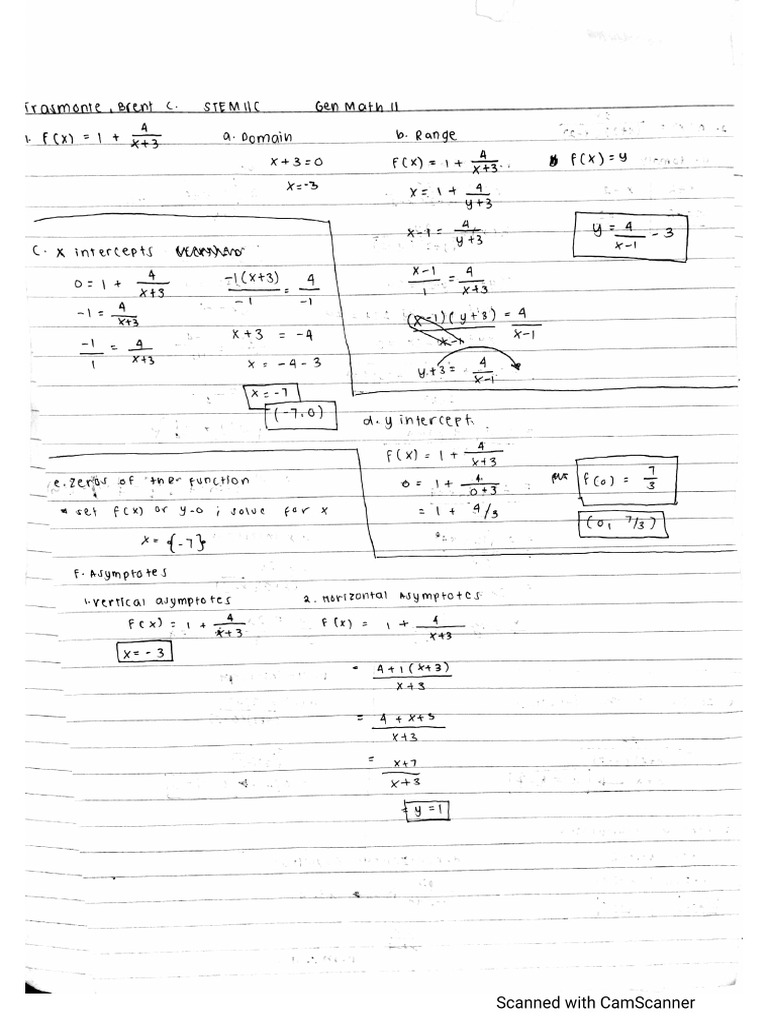 Trasmonte, Brent C. STEM 11C Gen Math 11
1. F(x) = 1 + 4/x+3
a. Domain
x+3=0
x=-3
b. Range
f(x) = 1 + 4/x+3
f(x) = y
x = 1 + 4/y+3
x-1 = 4/y+3
x-1/1 = 4/x+3
(x-1)(y+3)/x-1 = 4/x-1
y+3 = 4/x-1
y = 4/x-1 - 3
C. x intercepts
0 = 1 + 4/x+3
-1 = 4/x+3
-1/1 = 4/x+3
-1(x+3)/-1 = 4/-1
x+3 = -4
x = -4-3
x = -7
(-7,0)
d. y intercept
f(x) = 1 + 4/x+3
0 = 1 + 4/0+3
= 1 + 4/3
f(0) = 7/3
(0, 7/3)
e. zeros of the function
* set f(x) or y-0 ; solve for x
x = {-7}
F. Asymptotes
1. Vertical asymptotes
F(x) = 1 + 4/x+3
x = -3
2. Horizontal Asymptotes
F(x) = 1 + 4/x+3
= 4+1(x+3)/x+3
= 4+x+3/x+3
= x+7/x+3
y = 1
Scanned with CamScanner